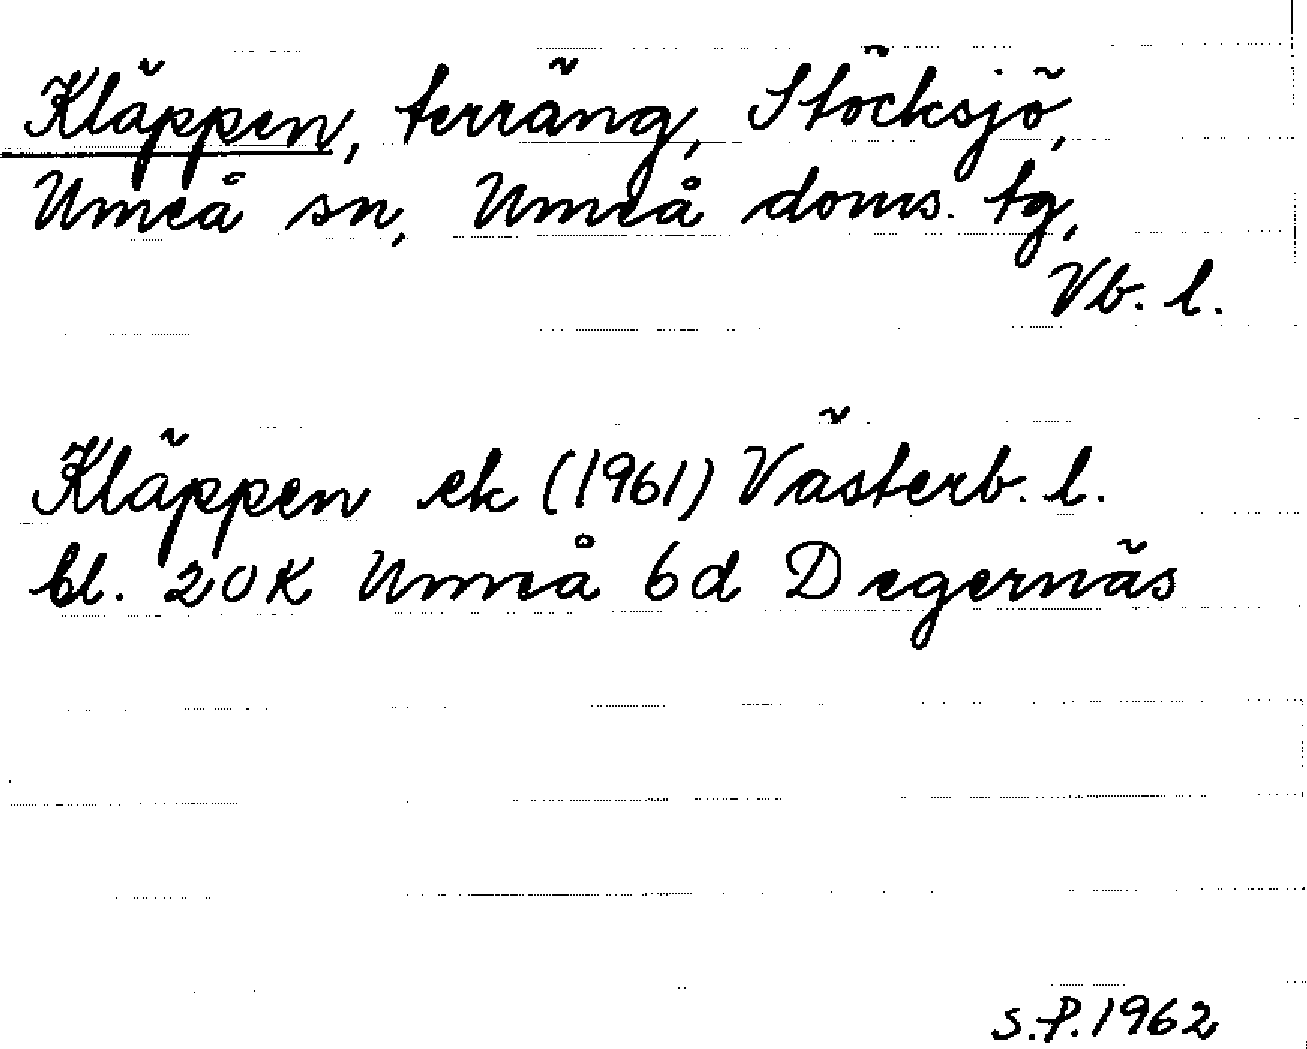 Kläppen, terräng, Stöcksjö,
Umeå sn, Umeå doms. tg,
Vb. l.
Kläppen ek (1961) Västerb. l.
bl. 20K Umeå 6d Degernäs
S.P. 1962